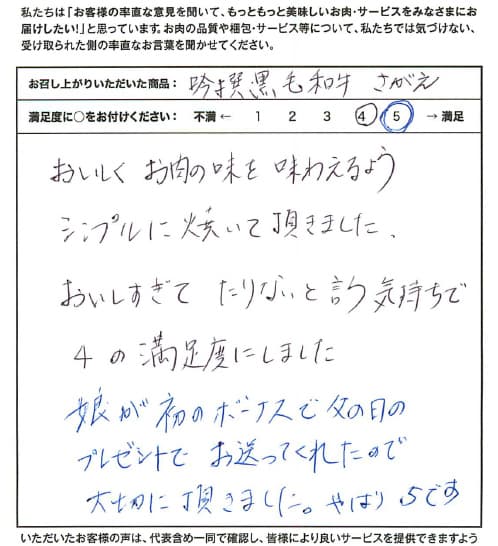 私たちは「お客様の率直な意見を聞いて、もっともっと美味しいお肉・サービスをみなさまにお
届けしたい!」と思っています。お肉の品質や梱包・サービス等について、私たちでは気づけない、
受け取られた側の率直なお言葉を聞かせてください。
お召し上がりいただいた商品: 吟撰黒毛和牛 さがえ
満足度に○をお付けください: 不満 ← 1 2 3 4 5 → 満足
おいしく お肉の味を 味わえるよう
シンプルに 焼いて 頂きました、
おいしすぎて たりないと 言う 気持ちで
4 の 満足度にしました
娘が 初の ボーナスで 父の日の
プレゼントで お送ってくれたので
大切に 頂きました。やはり 5です
いただいたお客様の声は、代表含め一同で確認し、皆様により良いサービスを提供できますよう